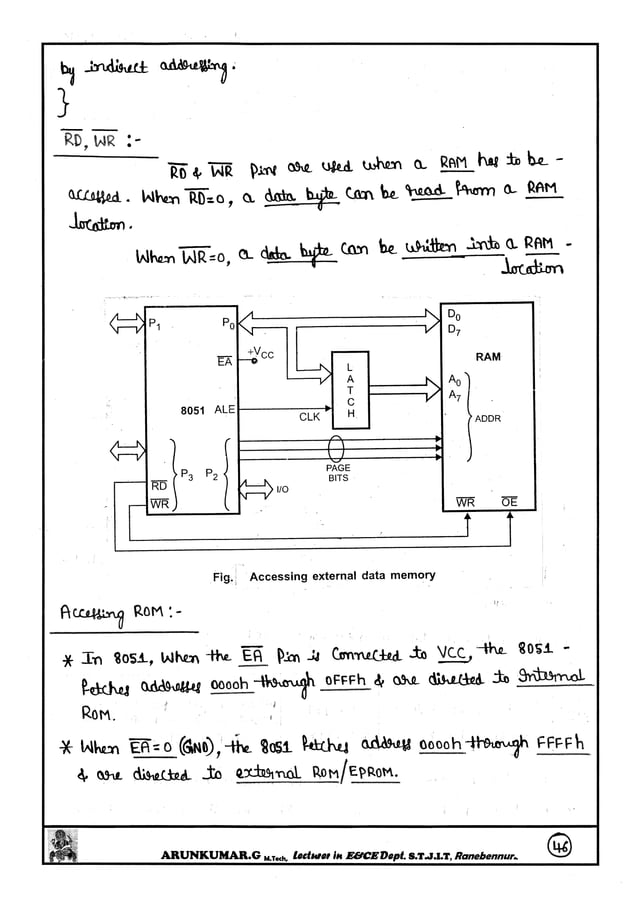 by indirect addressing.
}
R̅D̅, W̅R̅ :-
R̅D̅ & W̅R̅ Pins are used when a RAM has to be -
accessed. When R̅D̅=0, a data byte can be read from a RAM
location.
When W̅R̅=0, a data byte can be written into a RAM -
location
P1
P0
D0
D7
RAM
E̅A̅
+VCC
LATCH
A0
A7
ADDR
8051
ALE
CLK
P3
P2
PAGE
BITS
R̅D̅
I/O
W̅R̅
W̅R̅
O̅E̅
Fig. Accessing external data memory
Accessing ROM :-
* In 8051, When the E̅A̅ Pin is Connected to VCC, the 8051 -
fetches addresses 0000h through 0FFFh & are directed to Internal
ROM.
* When E̅A̅=0 (GND), the 8051 fetches address 0000h through FFFFh
& are directed to external ROM/EPROM.
ARUNKUMAR.G M.Tech, Lecturer in E&CE Dept. S.T.J.I.T, Ranebennur.
46